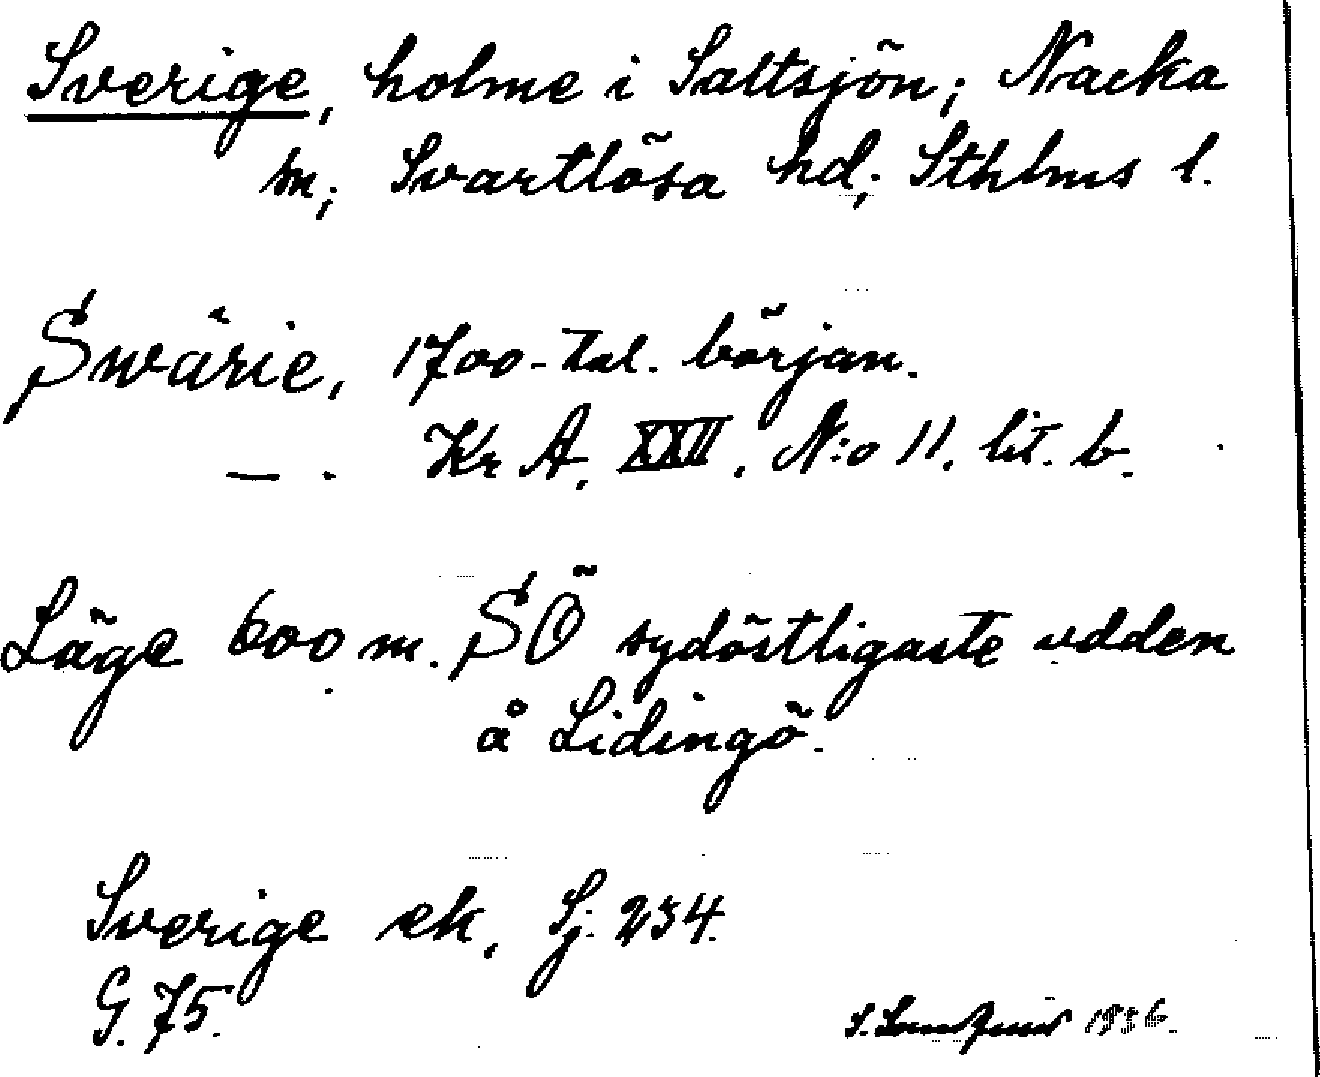 Sverige, holme i Saltsjön; Nacka
sn; Svartlösa hd; Sthlms l.
Swärie, 1700-tal. början.
— . Kr A. XXII. N:o 11. lit. b.
Läge 600 m. SÖ sydöstligaste udden
å Lidingö.
Sverige ek, Sj. 234.
G. 75.
S. 1936.